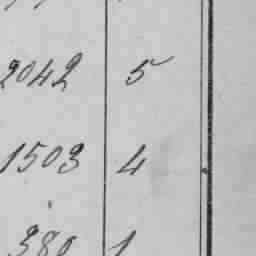 2042 5
1503 4
380 1